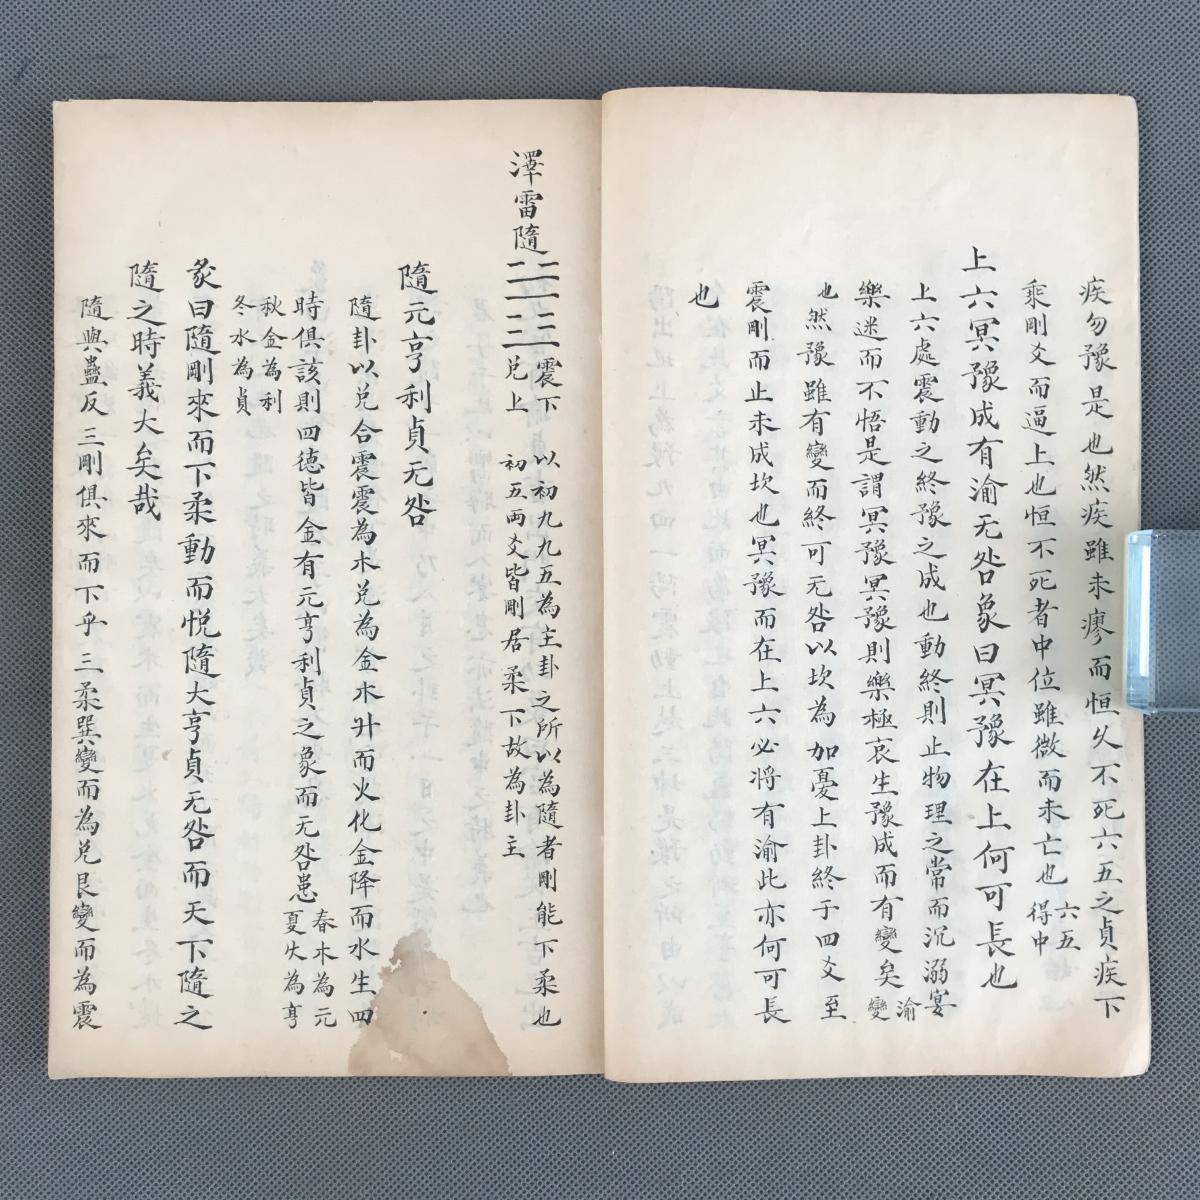 疾勿豫是也然疾雖未瘳而恒久不死六五之貞疾下
乘剛爻而逼上也恒不死者中位雖微而未亡也六五得中
上六冥豫成有渝无咎象曰冥豫在上何可長也
上六處震動之終豫之成也動終則止物理之常而沉溺宴
樂迷而不悟是謂冥豫冥豫則樂極哀生豫成而有變矣渝變
也然豫雖有變而終可无咎以坎為加憂上卦終于四爻至
震剛而止未成坎也冥豫而在上六必將有渝此亦何可長
也
澤雷隨
震下
兌上
以初九九五為主卦之所以為隨者剛能下柔也
初五兩爻皆剛居柔下故為卦主
隨元亨利貞无咎
隨卦以兌合震震為木兌為金木升而火化金降而水生四
時俱該則四德皆金有元亨利貞之象而无咎患春木為元夏火為亨
秋金為利冬水為貞
彖曰隨剛來而下柔動而悅隨大亨貞无咎而天下隨之
隨之時義大矣哉
隨與蠱反三剛俱來而下乎三柔巽變而為兌艮變而為震